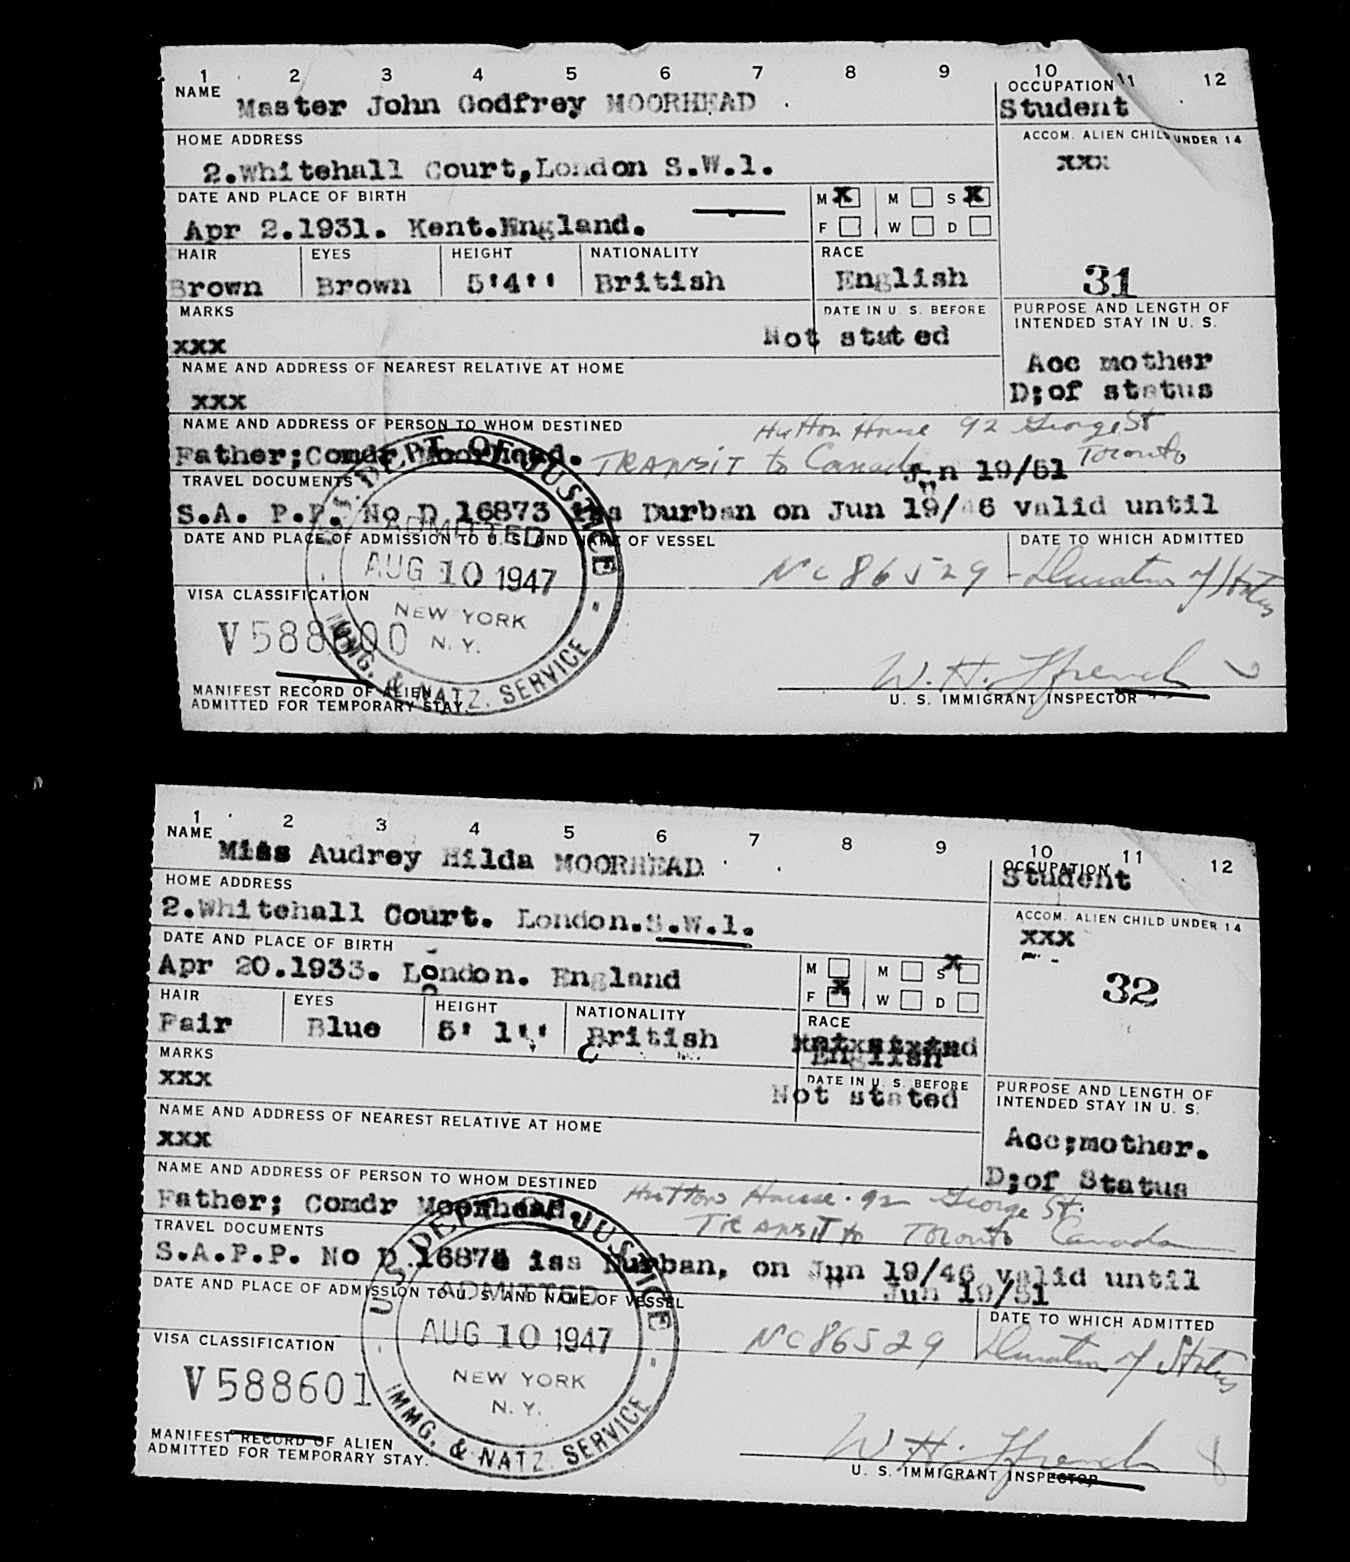 1 2 3 4 5 6 7 8 9 10 11 12
NAME Master John Godfrey MOORHEAD
OCCUPATION
Student
HOME ADDRESS
2.Whitehall Court,London S.W.1.
ACCOM. ALIEN CHILD UNDER 14
xxx
DATE AND PLACE OF BIRTH
Apr 2.1931. Kent.England.
M x M S x
F W D
HAIR EYES HEIGHT NATIONALITY RACE
Brown Brown 5'4'' British English
31
MARKS
xxx
DATE IN U. S. BEFORE
Not stated
PURPOSE AND LENGTH OF
INTENDED STAY IN U. S.
Acc mother
D;of status
NAME AND ADDRESS OF NEAREST RELATIVE AT HOME
xxx
NAME AND ADDRESS OF PERSON TO WHOM DESTINED
Hutton House 92 George St
Father;Comdr Moorhead. TRANSIT to Canada Toronto
Jun 19/51
TRAVEL DOCUMENTS
S.A. P.P. No D 16873 iss Durban on Jun 19/46 valid until
DATE AND PLACE OF ADMISSION TO U. S. AND NAME OF VESSEL
DATE TO WHICH ADMITTED
NC 86529 - Duration of Status
U. S. DEPT. OF JUSTICE
ADMITTED
AUG 10 1947
NEW YORK
N. Y.
IMMG. & NATZ. SERVICE
VISA CLASSIFICATION
V588600
W. H. Ffrench
MANIFEST RECORD OF ALIEN
ADMITTED FOR TEMPORARY STAY.
U. S. IMMIGRANT INSPECTOR
1 2 3 4 5 6 7 8 9 10 11 12
NAME Miss Audrey Hilda MOORHEAD
OCCUPATION
Student
HOME ADDRESS
2.Whitehall Court. London.S.W.1.
ACCOM. ALIEN CHILD UNDER 14
xxx
DATE AND PLACE OF BIRTH
Apr 20.1933. London. England
M M S x
F x W D
32
HAIR EYES HEIGHT NATIONALITY RACE
Fair Blue 5' 1'' British English
MARKS
xxx
DATE IN U. S. BEFORE
Not stated
PURPOSE AND LENGTH OF
INTENDED STAY IN U. S.
Acc;mother.
D;of Status
NAME AND ADDRESS OF NEAREST RELATIVE AT HOME
xxx
NAME AND ADDRESS OF PERSON TO WHOM DESTINED
Hutton House. 92 George St.
Father; Comdr Moorhead. TRANSIT to Toronto Canada
TRAVEL DOCUMENTS
S.A.P.P. No D 16874 iss Durban, on Jun 19/46 valid until
Jun 19/51
DATE AND PLACE OF ADMISSION TO U. S. AND NAME OF VESSEL
DATE TO WHICH ADMITTED
NC86529 Duration of Status
U. S. DEPT. OF JUSTICE
ADMITTED
AUG 10 1947
NEW YORK
N. Y.
IMMG. & NATZ. SERVICE
VISA CLASSIFICATION
V588601
W. H. Ffrench
MANIFEST RECORD OF ALIEN
ADMITTED FOR TEMPORARY STAY.
U. S. IMMIGRANT INSPECTOR